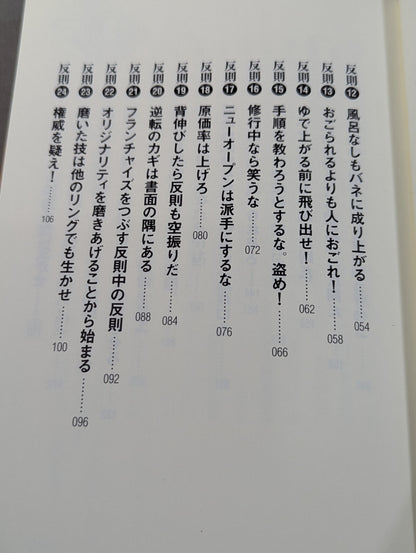 反則⓬ 風呂なしもバネに成り上がる………054
反則⓭ おごられるよりも人におごれ！………058
反則⓮ ゆで上がる前に飛び出せ！………062
反則⓯ 手順を教わろうとするな。盗め！………066
反則⓰ 修行中なら笑うな………072
反則⓱ ニューオープンは派手にするな………076
反則⓲ 原価率は上げろ………080
反則⓳ 背伸びしたら反則も空振りだ………084
反則⓴ 逆転のカギは書面の隅にある………088
反則㉑ フランチャイズをつぶす反則中の反則………092
反則㉒ オリジナリティを磨きあげることから始まる………096
反則㉓ 磨いた技は他のリングでも生かせ………100
反則㉔ 権威を疑え！………106